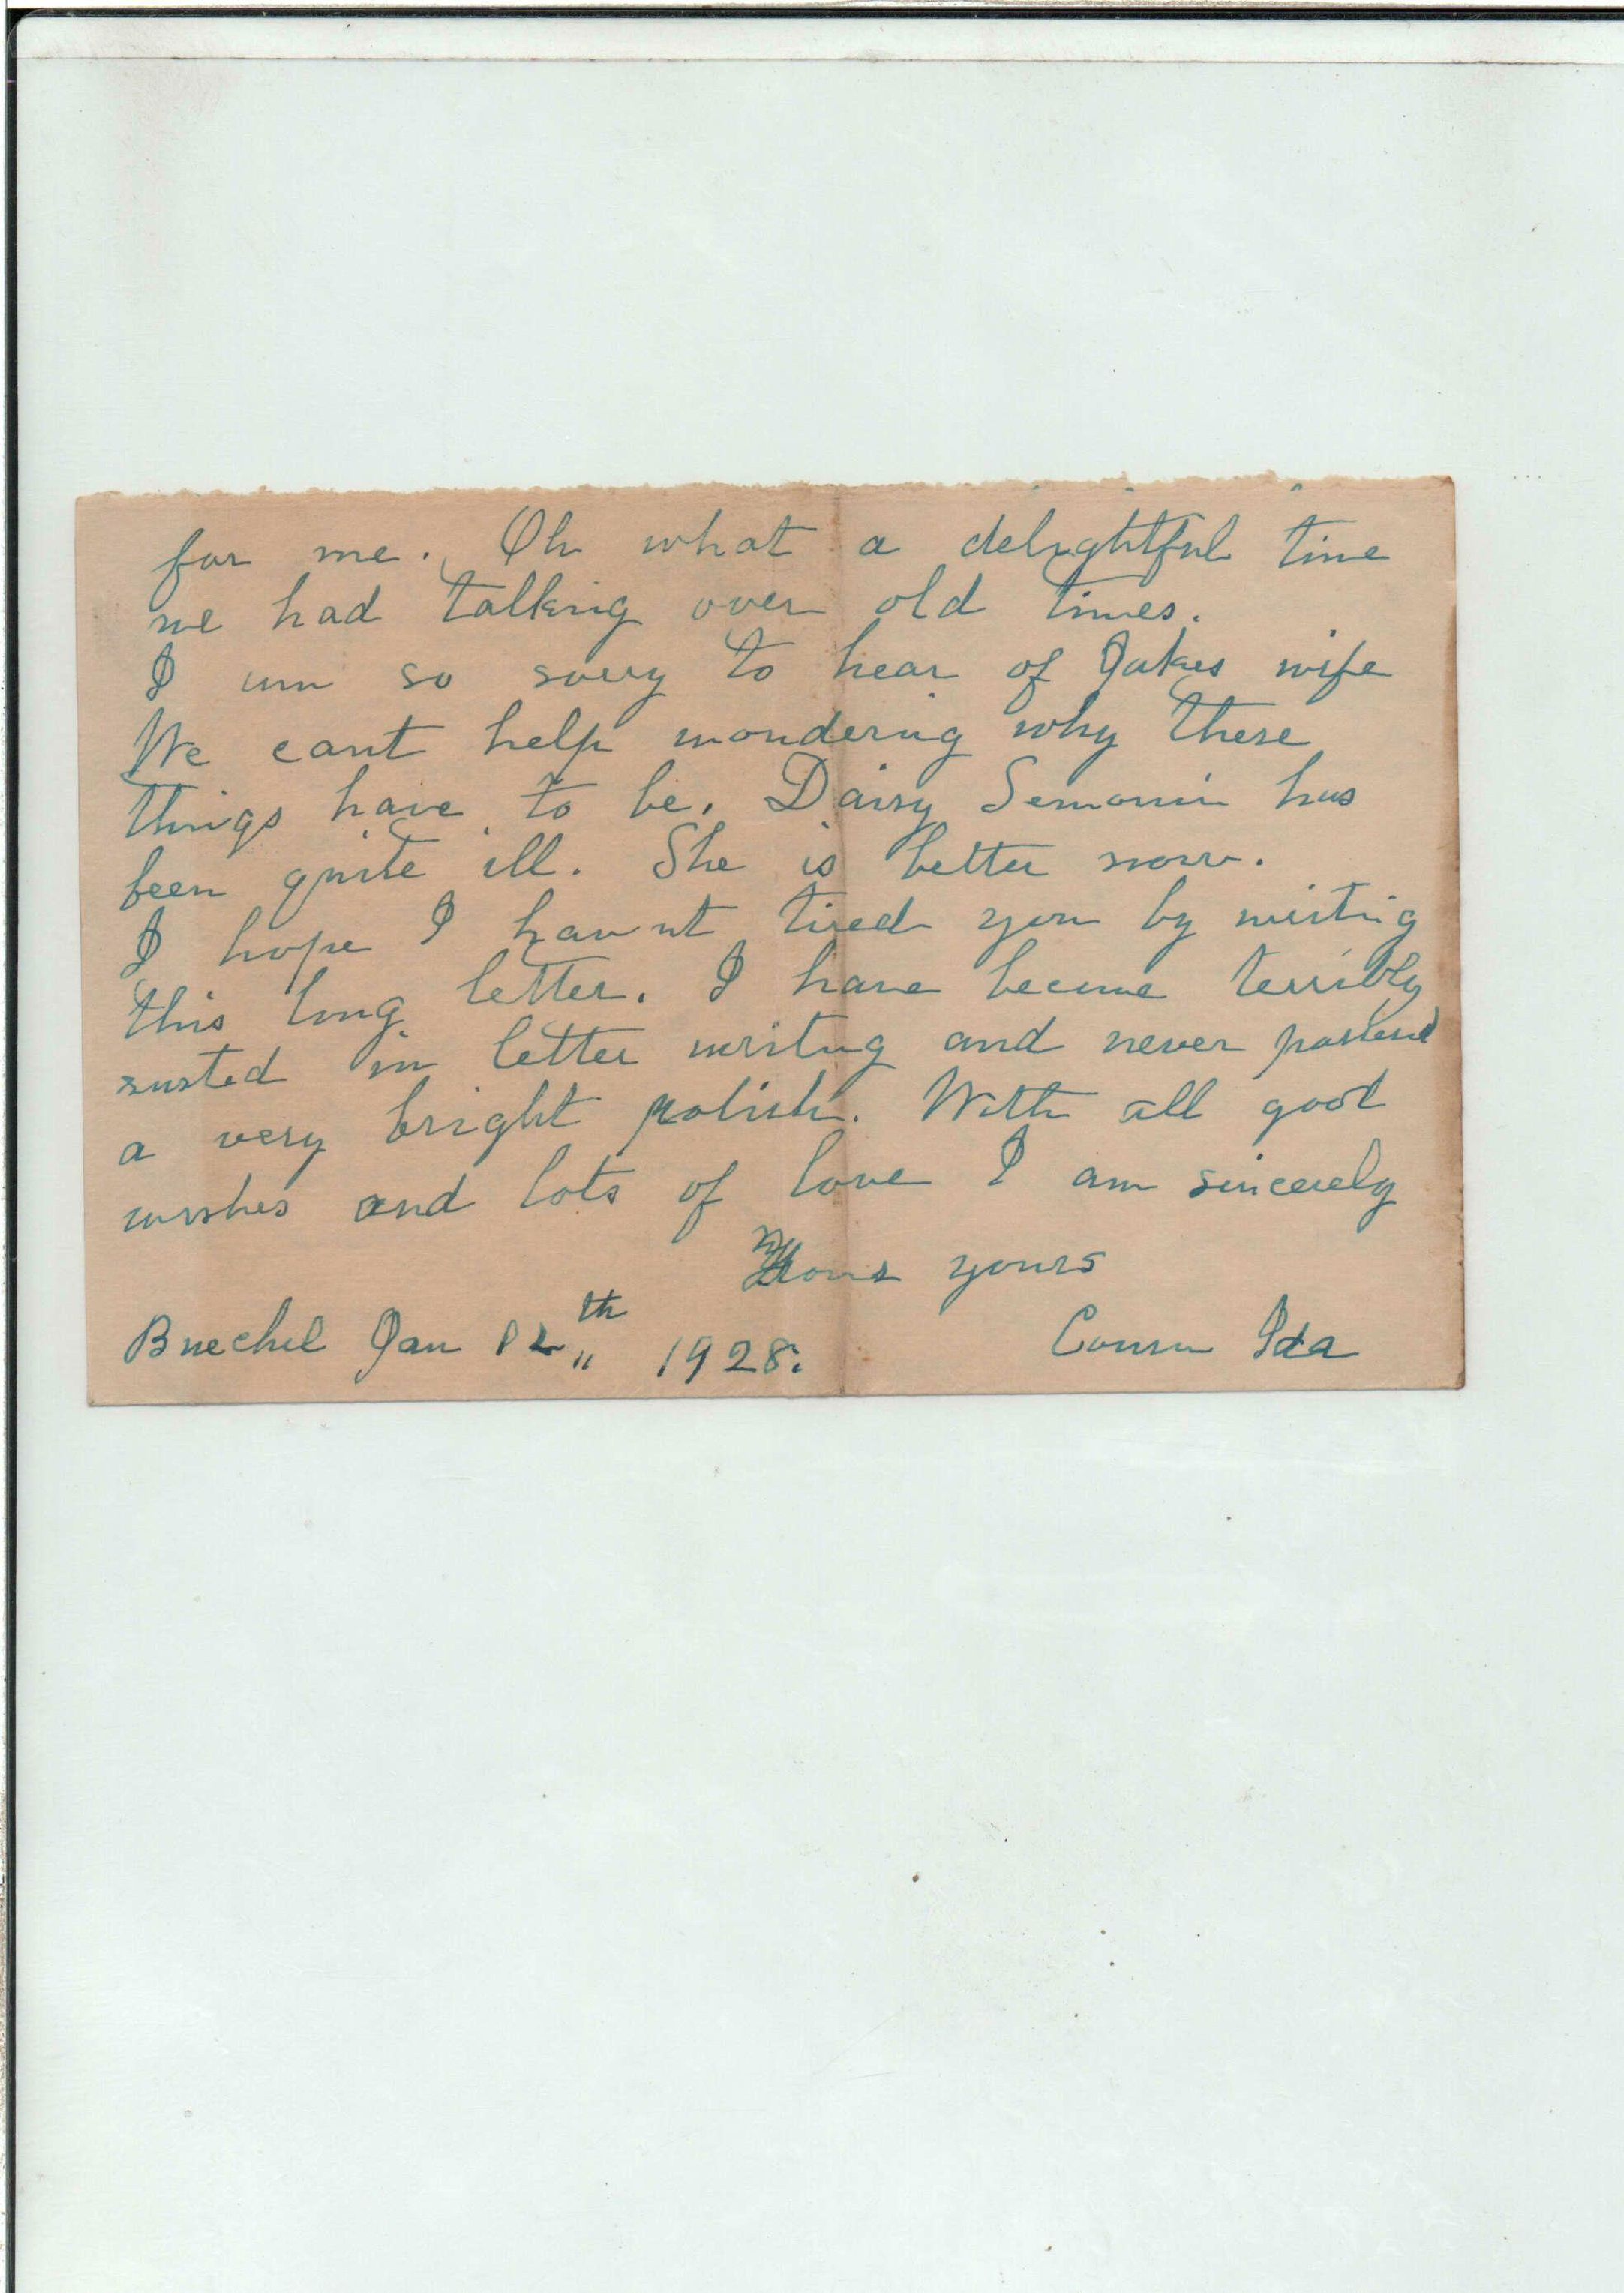 for me. Oh what a delightful time
we had talking over old times.
I am so sorry to hear of Jakes wife
We cant help wondering why these
things have to be. Daisy Semonin has
been quite ill. She is better now.
I hope I havnt tired you by writing
this long letter. I have become terribly
rusted in letter writing and never possessed
a very bright polish. With all good
wishes and lots of love I am sincerely
yours
Buechel Jan 12th 1928. Cousin Ida